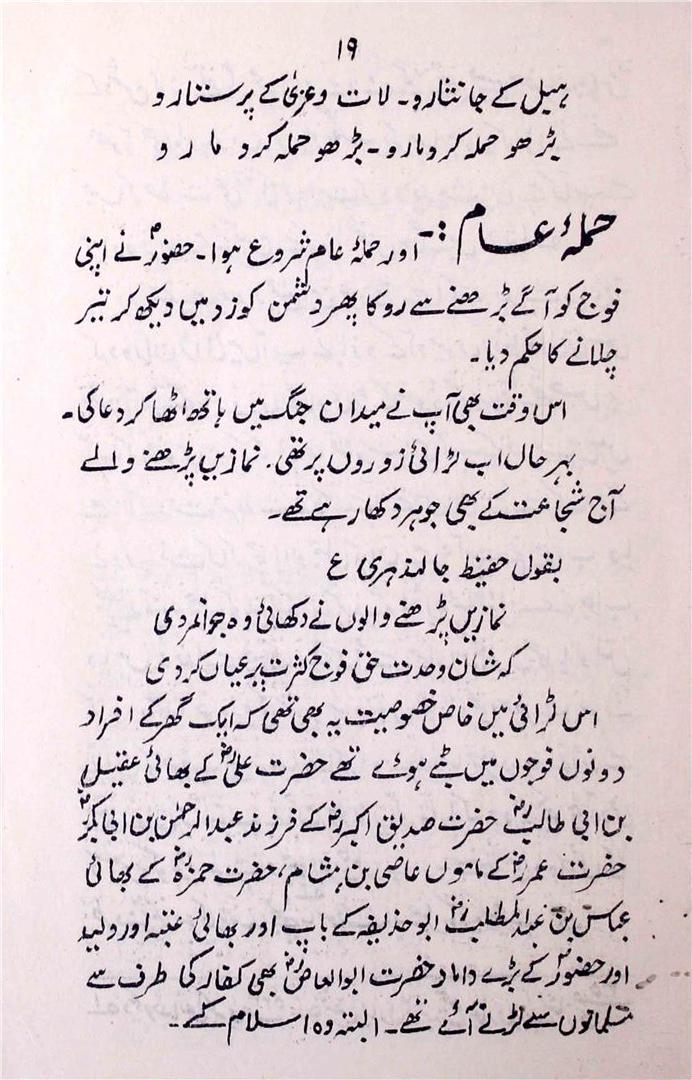 ۱۹
ہبل کے جانثارو۔ لات وعزیٰ کے پرستارو
بڑھو حملہ کرو مارو۔ بڑھو حملہ کرو مارو
حملۂ عام :۔ اور حملۂ عام شروع ہوا۔ حضورؐ نے اپنی
فوج کو آگے بڑھنے سے روکا پھر دشمن کو زد میں دیکھ کر تیر
چلانے کا حکم دیا۔
اس وقت بھی آپ نے میدان جنگ میں ہاتھ اٹھا کر دعا کی۔
بہر حال اب لڑائی زوروں پر تھی۔ نمازیں پڑھنے والے
آج شجاعت کے بھی جوہر دکھا رہے تھے۔
بقول حفیظ جالندھری ع
نمازیں پڑھنے والوں نے دکھائی وہ جوانمردی
کہ شان وحدت حق فوج کثرت پر عیاں کر دی
اس لڑائی میں خاص خصوصیت یہ بھی تھی کہ ایک گھر کے افراد
دونوں فوجوں میں بٹے ہوئے تھے حضرت علیؓ کے بھائی عقیل
بن ابی طالبؓ حضرت صدیق اکبرؓ کے فرزند عبدالرحمٰن بن ابی بکرؓ
حضرت عمرؓ کے ماموں عاصی بن ہشام، حضرت حمزہؓ کے بھائی
عباس بن عبدالمطلبؓ ابو حذیفہ کے باپ اور بھائی عتبہ اور ولید
اور حضورؐ کے بڑے داماد حضرت ابوالعاصؓ بھی کفار کی طرف سے
مسلمانوں سے لڑنے آئے تھے۔ البتہ وہ اسلام کے۔